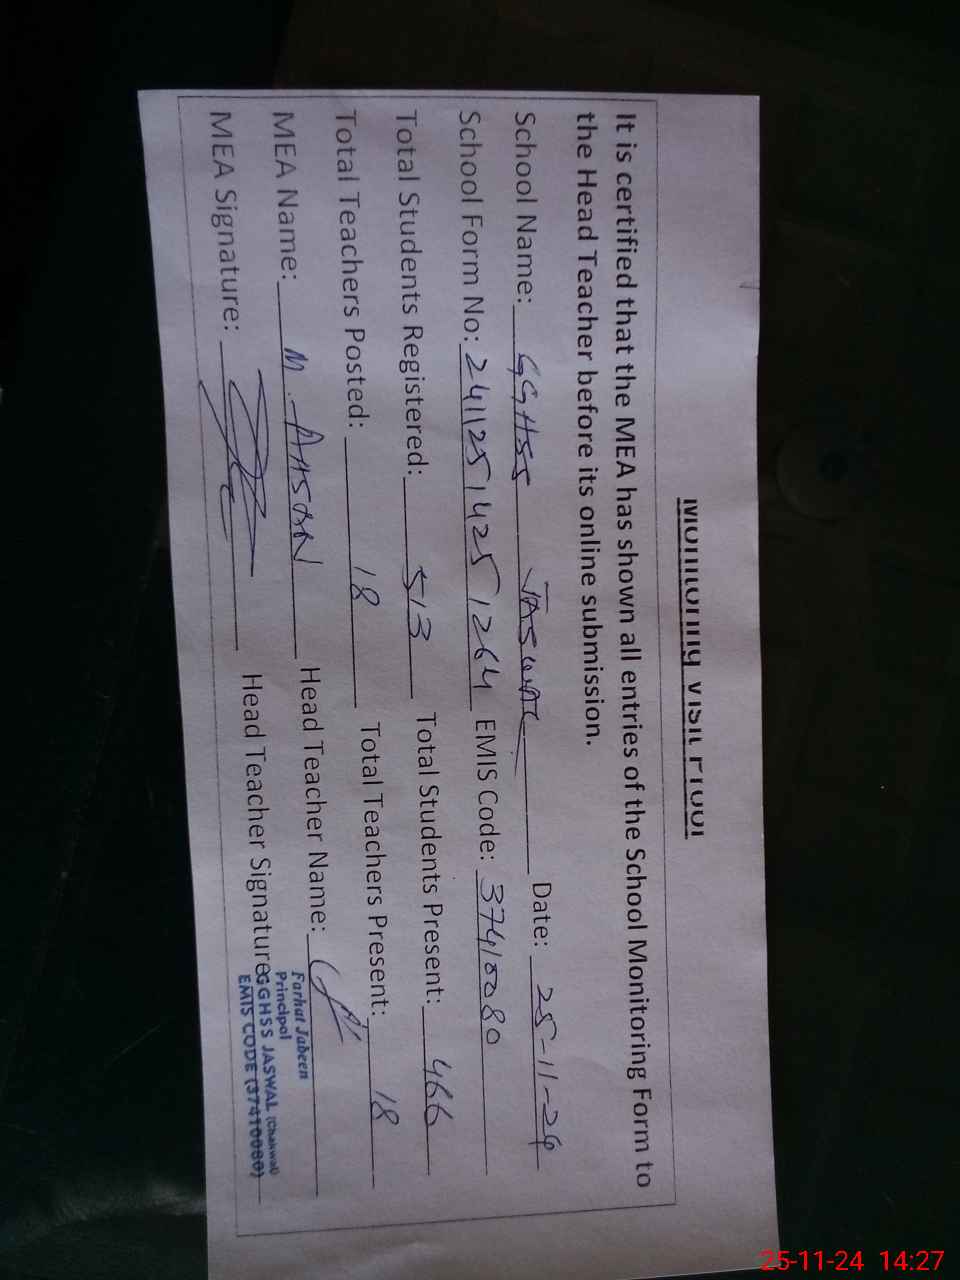 Monitoring Visit Proof
It is certified that the MEA has shown all entries of the School Monitoring Form to
the Head Teacher before its online submission.
School Name: GGHSS JASWAL Date: 25-11-24
School Form No: 24112514251264 EMIS Code: 37410080
Total Students Registered: 513 Total Students Present: 466
Total Teachers Posted: 18 Total Teachers Present: 18
MEA Name: M. AHSAN Head Teacher Name:
MEA Signature: Head Teacher Signature
Farhat Jabeen
Principal
GGHSS JASWAL (Chakwal)
EMIS CODE (37410080)
25-11-24 14:27